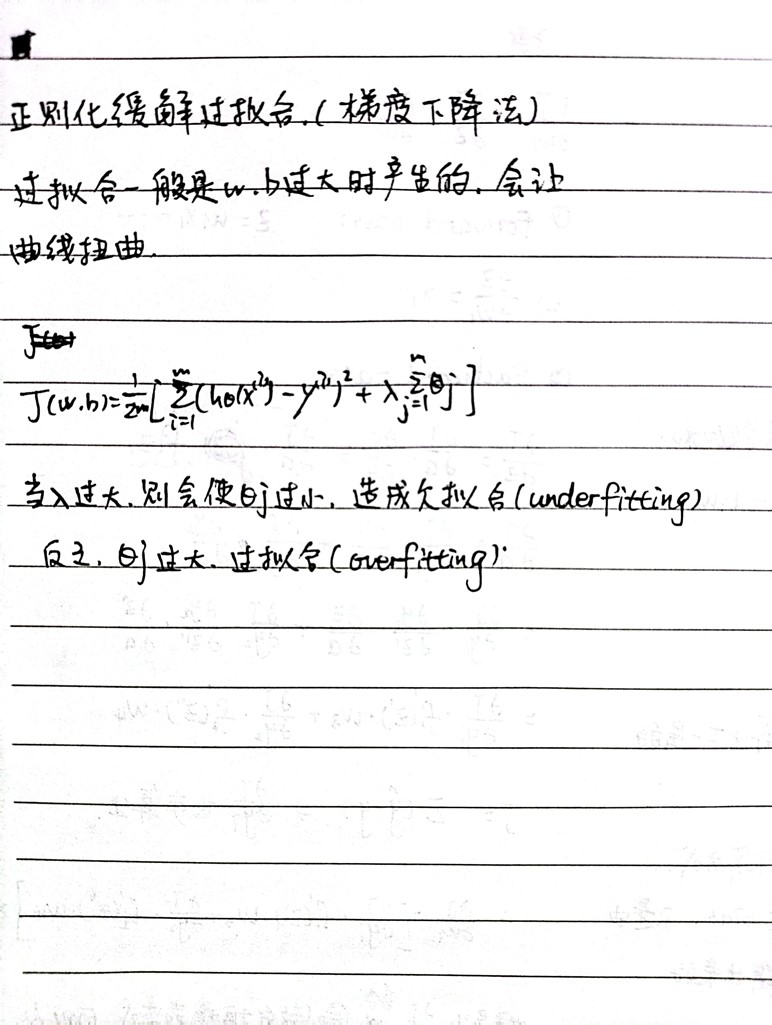 正则化缓解过拟合.(梯度下降法)
过拟合一般是w.b过大时产生的.会让
曲线扭曲.
J(w.b)=1/2m[∑_{i=1}^{m}(hθ(x^(i))-y^(i))^2+λ∑_{j=1}^{n}θj]
当λ过大.则会使θj过小.造成欠拟合(underfitting)
反之.θj过大.过拟合(overfitting).